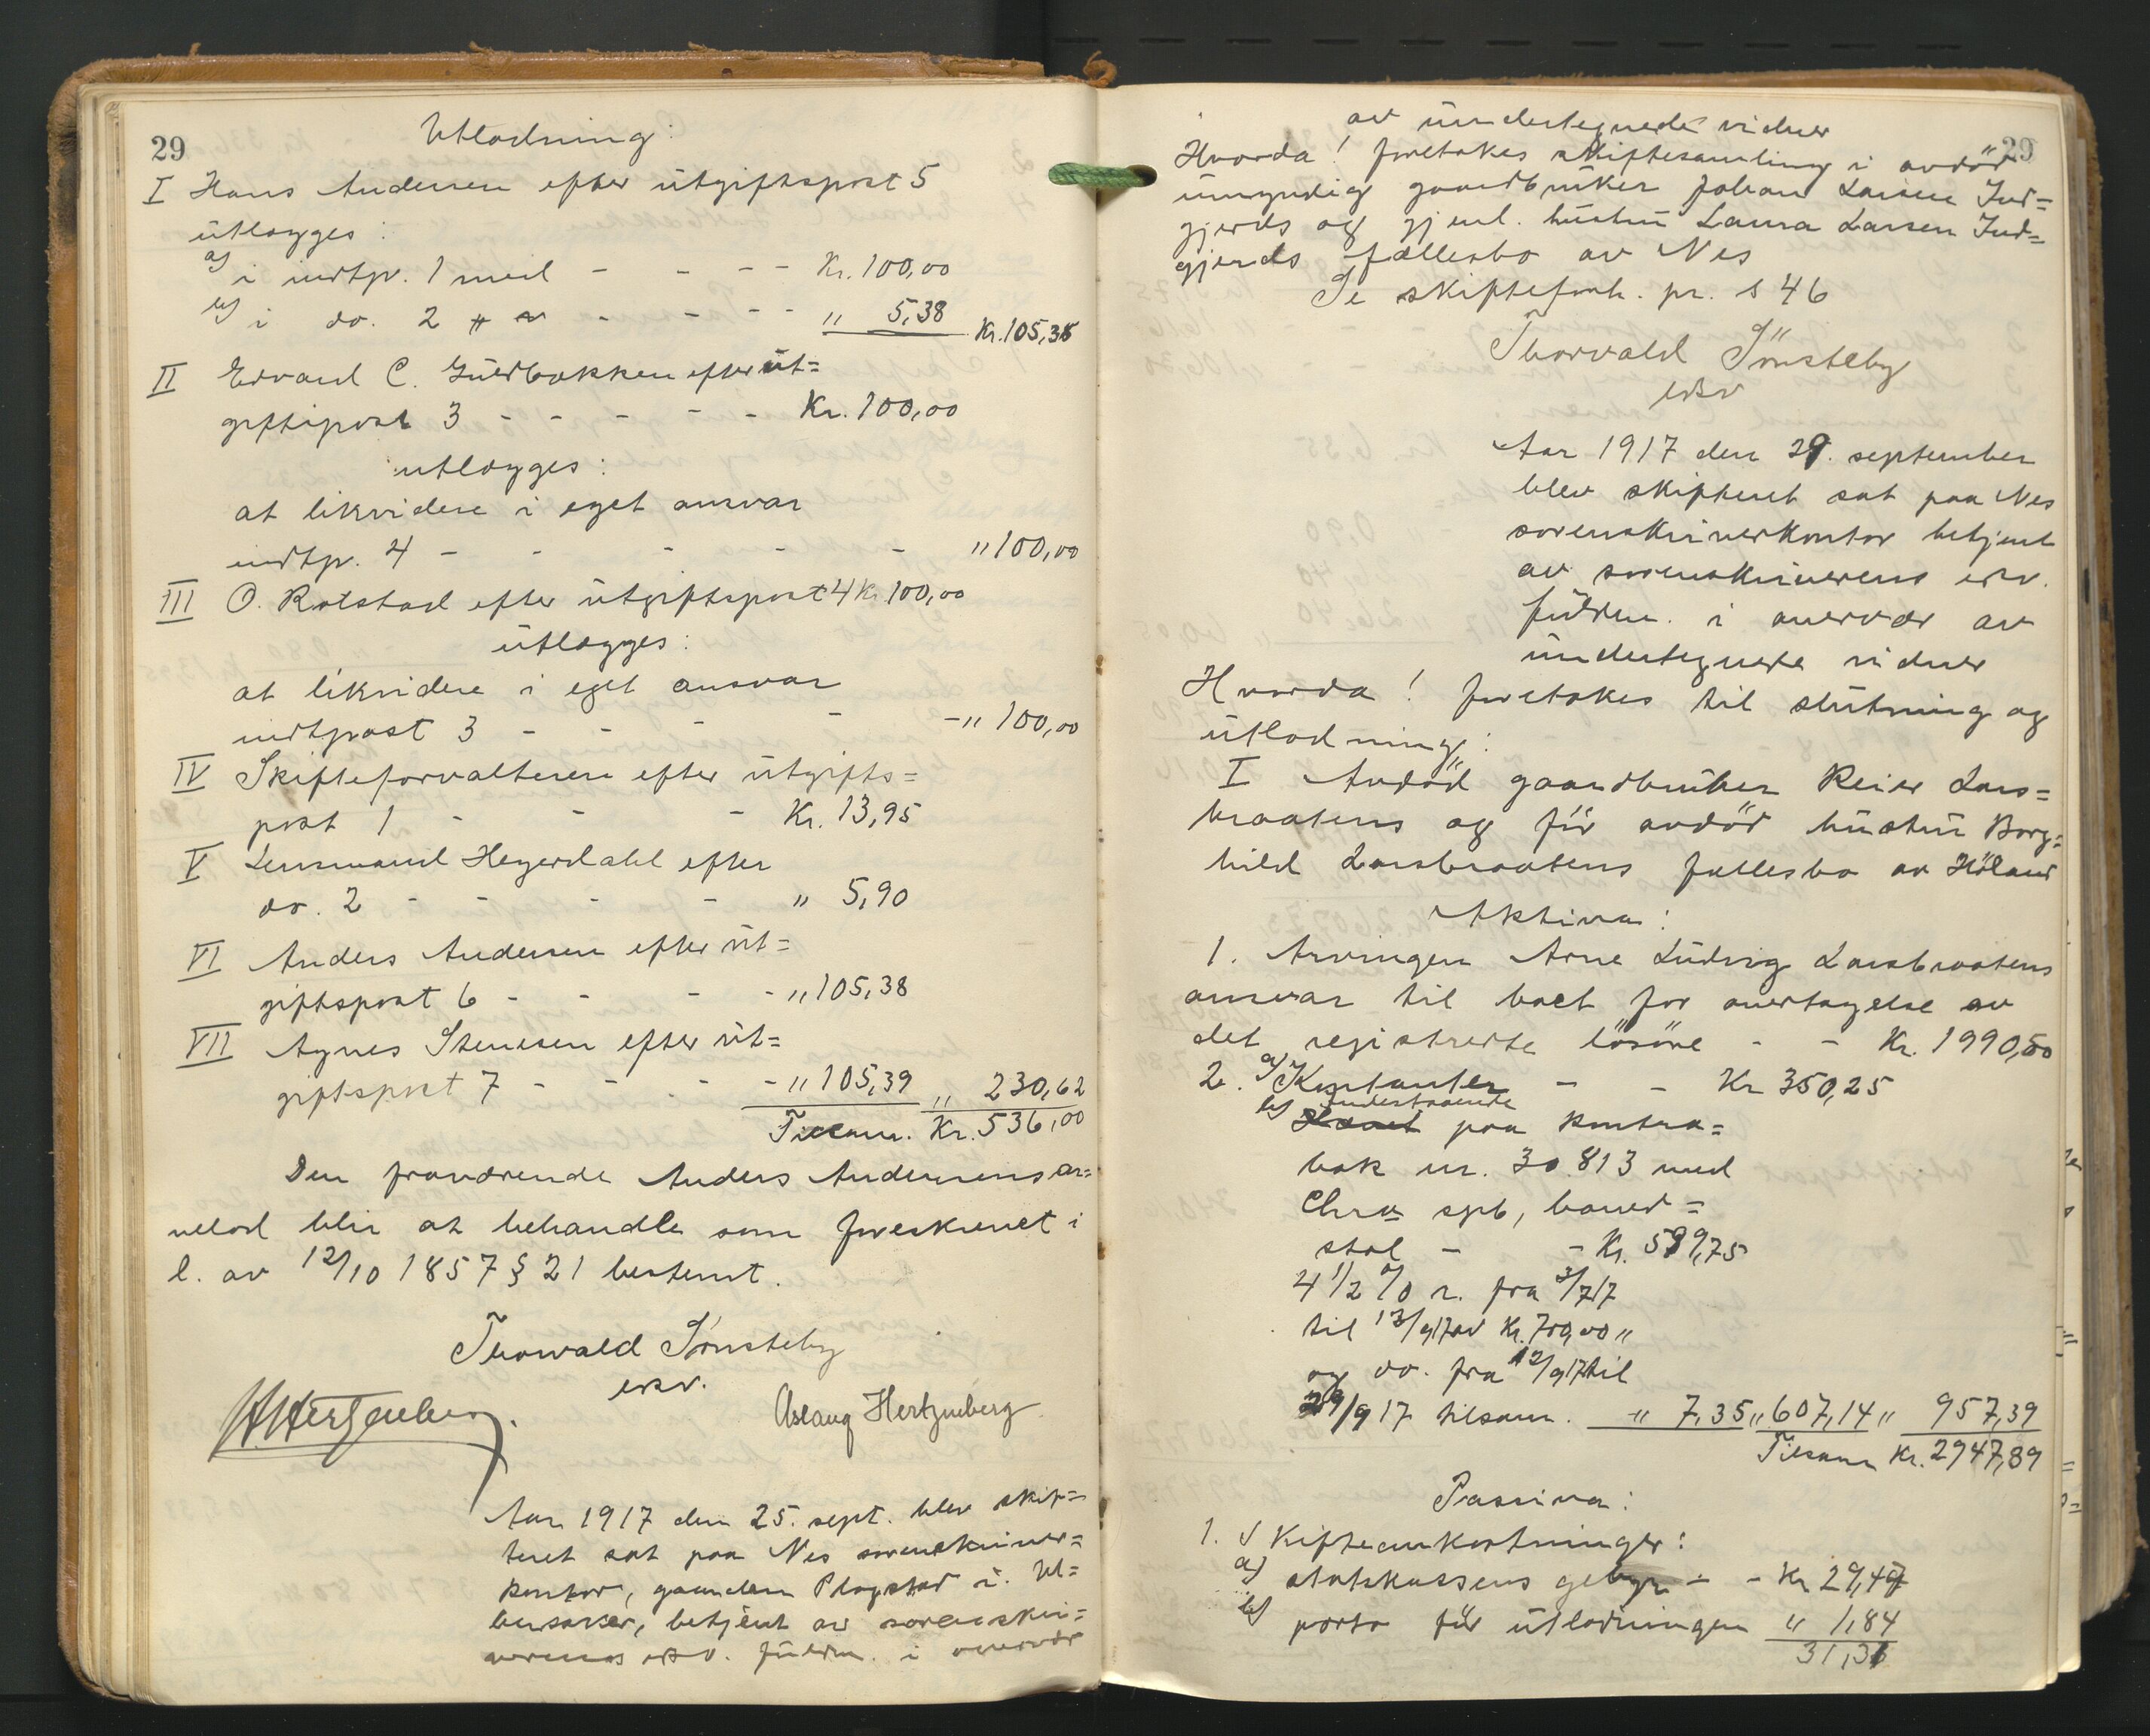 29
Utlodning:
I Hans Andersen efter utgiftspost 5
utlægges:
a) i indtp. 1 med - - - - Kr. 100,00
b) i do. 2 - - - - " 5,38 Kr. 105,38
II Edvard C. efter ut=
giftspost 3 - - - - - Kr. 100,00
utlægges:
at likvidere i eget ansvar
indtp. 4 - - - - - " 100,00
III O. Rolstad efter utgiftspost 4 Kr. 100,00
utlægges:
at likvidere i eget ansvar
indtpost 3 - - - - - " 100,00
IV Skifteforvalteren efter utgifts=
post 1 - - - Kr. 13,95
V Lensmand Heyerdahl efter
do. 2 - - - - " 5,90
VI Anders Andersen efter ut=
giftspost 6 - - - - " 105,38
VII Agnes Stenesen efter ut=
giftspost 7 - - - - " 105,39 " 230,62
Tilsam. Kr. 536,00
Den fraværende Anders Andersens ar=
velod blir at behandle som foreskrevet i
l. av 12/10 1857 § 21 bestemt.
Thorvald Jönsteby
esv.
H Hertzenberg. Aslaug Hertzenberg
Aar 1917 den 25. sept. blev skif=
teret sat paa Nes sorenskriver=
kontor, gaarden Plogstad i Ul=
lensaker, betjent av sorenskri=
verens fuldm. i overvær
29
av undertegnede vidner
Hvorda! foretokes skiftesamling i avdöd
umyndig gaardbruker Johan Larsen Ind=
gjerds og gjenl. hustru Laura Larsen Ind=
gjerds fællesbo av Nes
Se skifteforh. pr. s 46
Thorvald Jönsteby
esv
Aar 1917 den 29. september
blev skifteret sat paa Nes
sorenskriverkontor betjent
av sorenskriverens
fuldm. i overvær av
undertegnede vidner
Hvorda! foretokes til slutning og
utlodning:
I Avdöd gaardbruker Reier Lars=
braatens og för avdöd hustru Borg=
hild Larsbraatens fællesbo av Höland
Aktiva:
1. Arvingen Arne Ludvig Larsbraatens
ansvar til boet for overtagelse av
det registrerte lösöre - - Kr. 1990,50
2. a) Kontanter - - Kr 350,25
b) Indestaaende paa kontra=
bok nr. 30.813 med
Chra spb, baned=
stol - - Kr. 599,75
4 1/2 % r. fra 3/7 17
til 13/9 17 av Kr. 700,00 "
og do. fra 12/9 17 til
29/9 17 tilsam. " 7,35 " 607,14 " 957,39
Tilsam Kr. 2947,89
Passiva:
1. Skifteomkostninger:
a) statskassens gebyr - - Kr 29,47
b) porto för utlodningen " 1,84
31,31